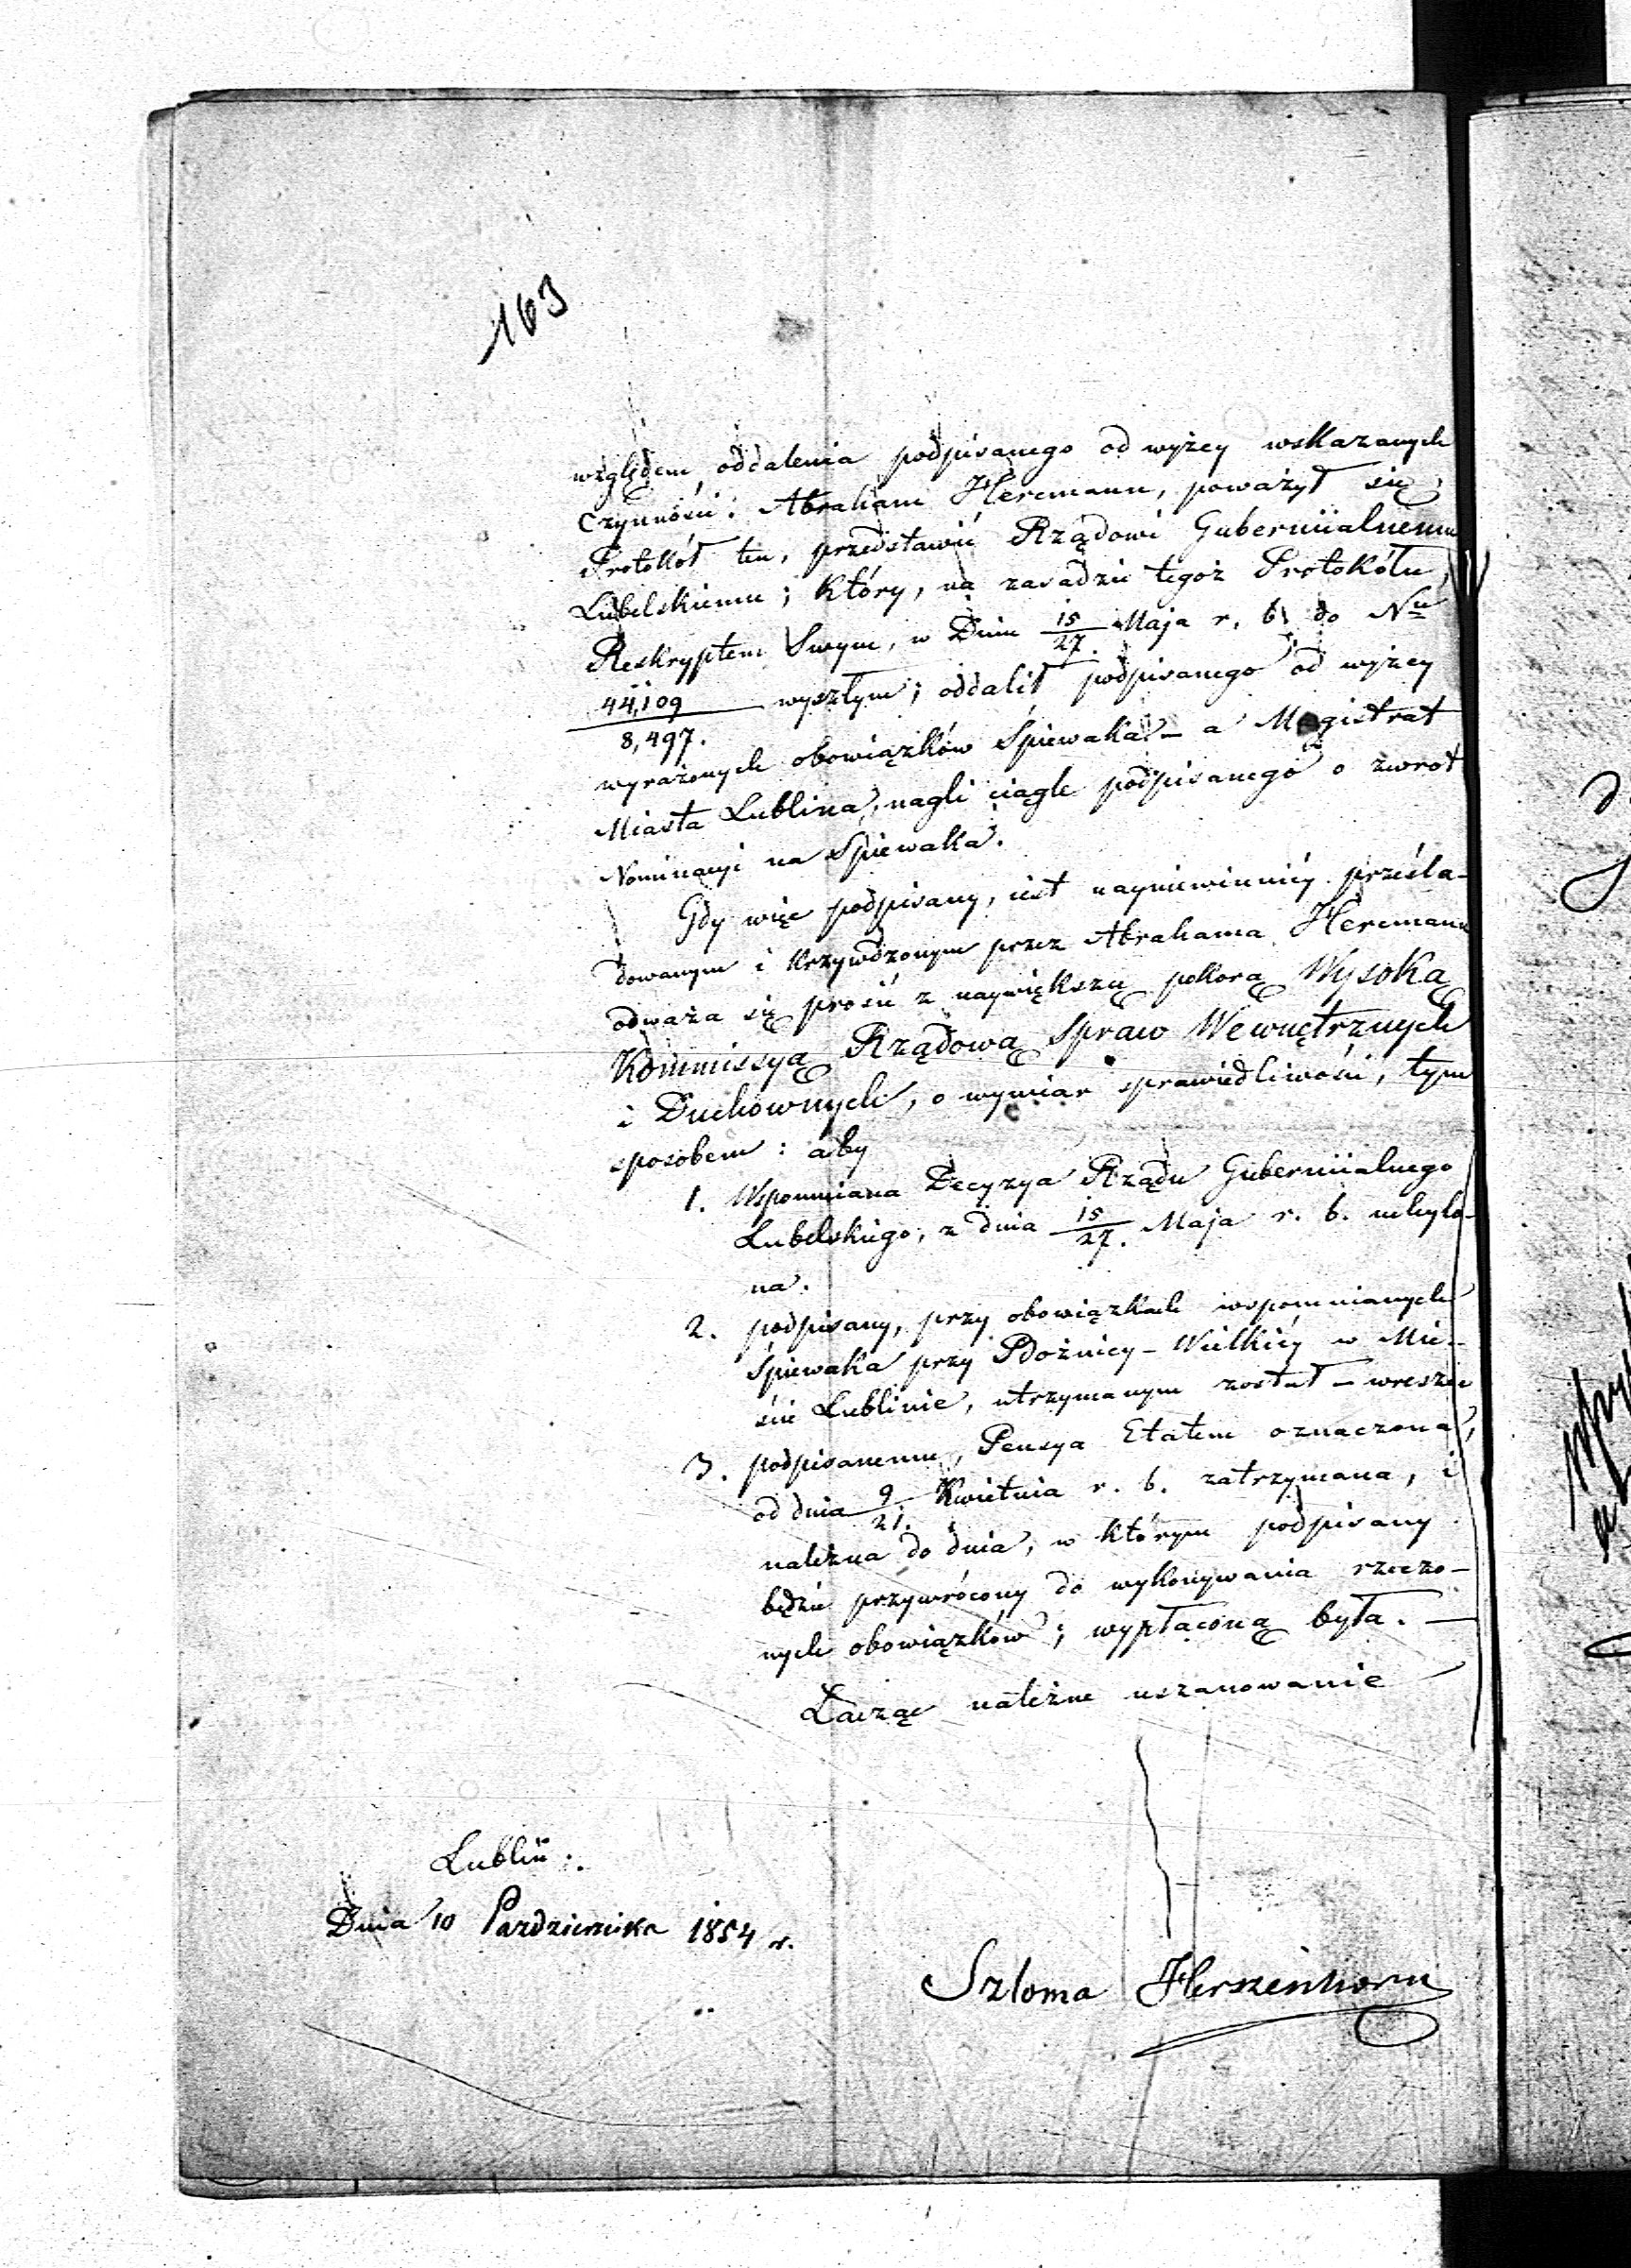 163
względem oddalenia podpisanego od wyżey wskazanych
czynności. Abraham Hercmann, poważył się
Protokół ten, przedstawić Rządowi Guberniialnemu
Lubelskiemu; który, na zasadzie tegoż Protokółu,
Reskryptem Swym, w Dniu 15/27. Maja r. b. do Nu
44,109/8,497. wyszłym; oddalił podpisanego od wyżey
wyrażonych obowiązków Śpiewaka – a Magistrat
Miasta Lublina, nagli ciągle podpisanego o zwrot
Nominacyi na Śpiewaka.
Gdy więc podpisany, iest nayniewinniéy prześla-
dowanym i krzywdzonym przez Abrahama Hercmann
odważa się prosić z naywiększą pokorą Wysoką
Kommissyą Rządową Spraw Wewnętrznych
i Duchownych, o wymiar sprawiedliwości, tym
sposobem: aby
1. Wspomniana Decyzya Rządu Guberniialnego
Lubelskiego, z dnia 15/27. Maja r. b. uchylo-
na.
2. podpisany, przy obowiązkach wspomnianych
Śpiewaka przy Bożnicy – Wielkiéy w Mie-
ście Lublinie, utrzymanym został – wreszcie
3. podpisanemu, Pensya Etatem oznaczona,
od dnia 9/21. Kwietnia r. b. zatrzymana, i
należna do dnia, w którym podpisany
będzie przywrócony do wykonywania rzeczo-
nych obowiązków; wypłaconą była. —
Łącząc należne uszanowanie
Lublin.
Dnia 10 Pazdziernika 1854 r.
Szloma Herszenhorn